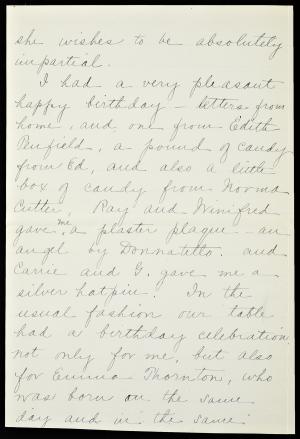 she wishes to be absolutely
impartial.
I had a very pleasant
happy birthday - letters from
home, and one from Edith
Penfield, a pound of candy
from Ed, and also a little
box of candy from Norma
Cutter, Ray and Winifred
gave me a plaster plaque - an
angel by Donnatello. and
Carrie and G. gave me a
silver hatpin. In the
usual fashion our table
had a birthday celebration,
not only for me, but also
for Emma Thornton, who
was born on the same
day and in the same